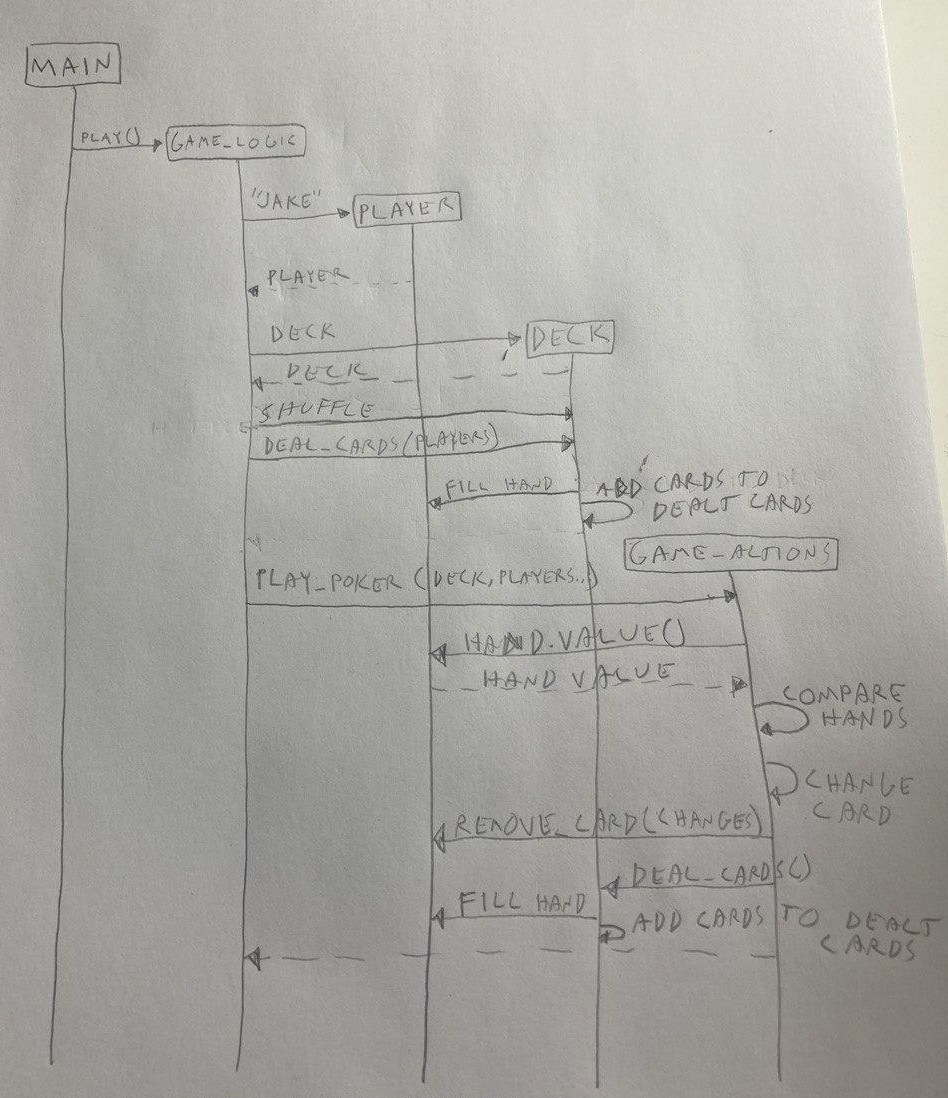 MAIN
PLAY()
GAME_LOGIC
"JAKE"
PLAYER
PLAYER
DECK
DECK
DECK
SHUFFLE
DEAL_CARDS(PLAYERS)
FILL HAND
ADD CARDS TO
DEALT CARDS
GAME_ACTIONS
PLAY_POKER (DECK,PLAYERS..)
HAND.VALUE()
HAND VALUE
COMPARE
HANDS
CHANGE
CARD
REMOVE_CARD(CHANGES)
DEAL_CARDS()
FILL HAND
ADD CARDS TO DEALT
CARDS